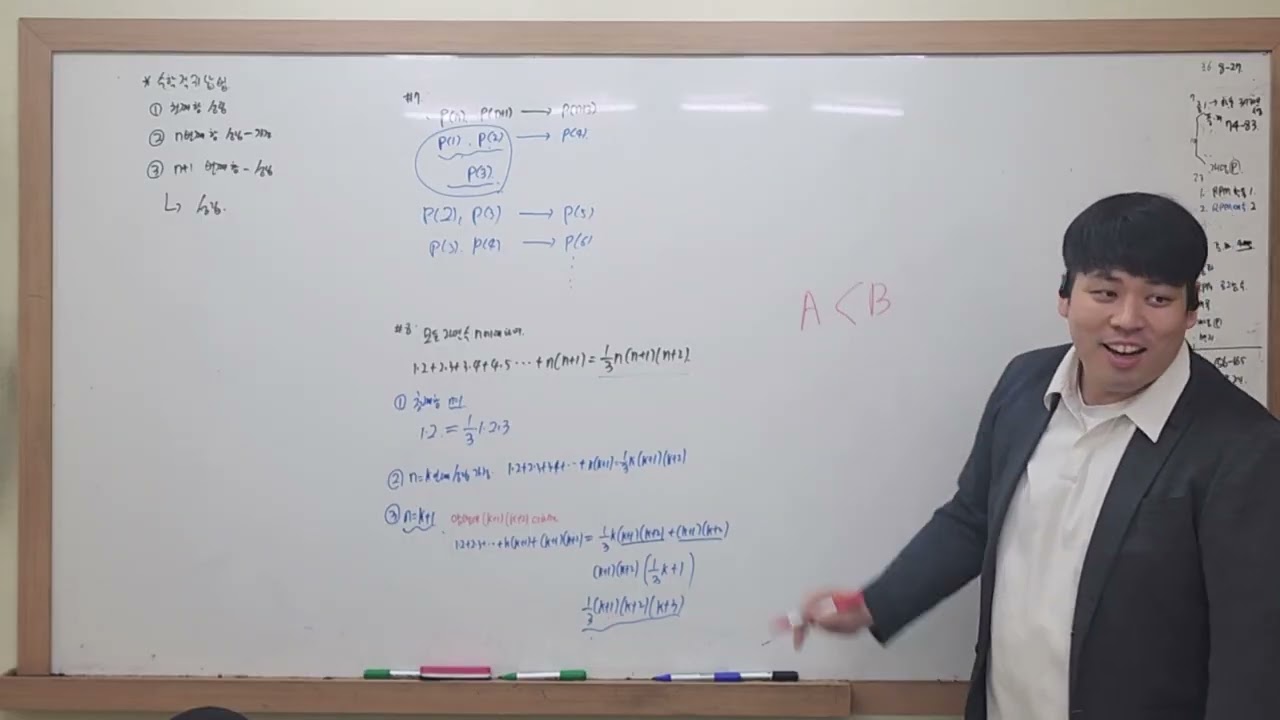 * 수학적 귀납법
① 첫째항 성립
② n번째항 성립-가정
③ n+1 번째항-성립
↳ 성립.
#7.
P(n), P(n+1) → P(n+3)
P(1), P(2) → P(4)
P(3)
P(2), P(3) → P(5)
P(3), P(4) → P(6)
⋮
#8. 모든 자연수 n에 대하여.
1·2+2·3+3·4+4·5 ⋯ + n(n+1) = 1/3 n(n+1)(n+2)
① 첫째항 n=1
1·2. = 1/3 1·2·3
② n=k 번째 성립 가정. 1·2+2·3+3·4+⋯+k(k+1)=1/3 k(k+1)(k+2)
③ n=k+1 (k+1)(k+2)
1·2+2·3+⋯+k(k+1)+(k+1)(k+2) = 1/3 k(k+1)(k+2)+(k+1)(k+2)
(k+1)(k+2)(1/3 k+1)
1/3(k+1)(k+2)(k+3)
A < B
8-27
74-83
1. RPM
2. RPM 2
156-165